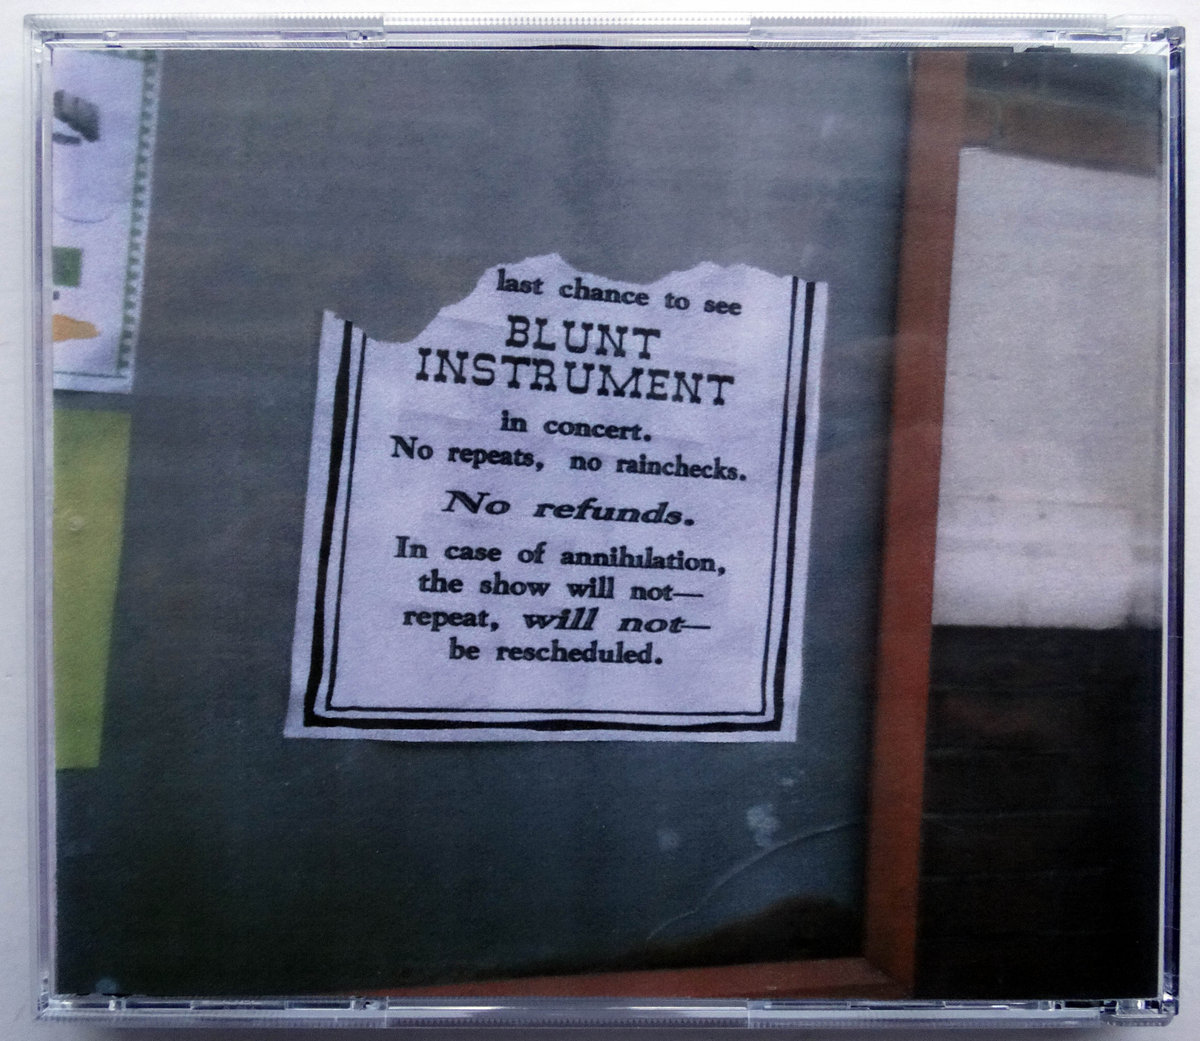 last chance to see
BLUNT
INSTRUMENT
in concert.
No repeats, no rainchecks.
No refunds.
In case of annihilation,
the show will not—
repeat, will not—
be rescheduled.